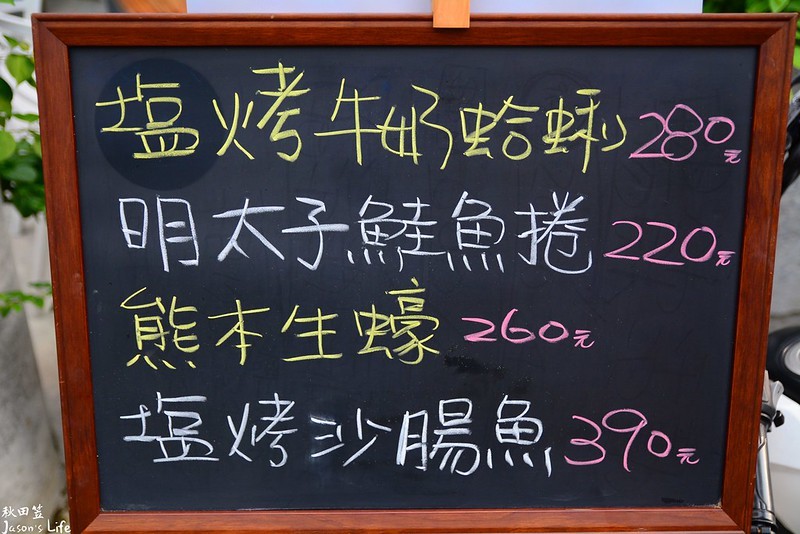 塩烤牛奶蛤蜊 280元
明太子鮭魚捲 220元
熊本生蠔 260元
塩烤沙腸魚 390元
秋田笠
Jason's Life